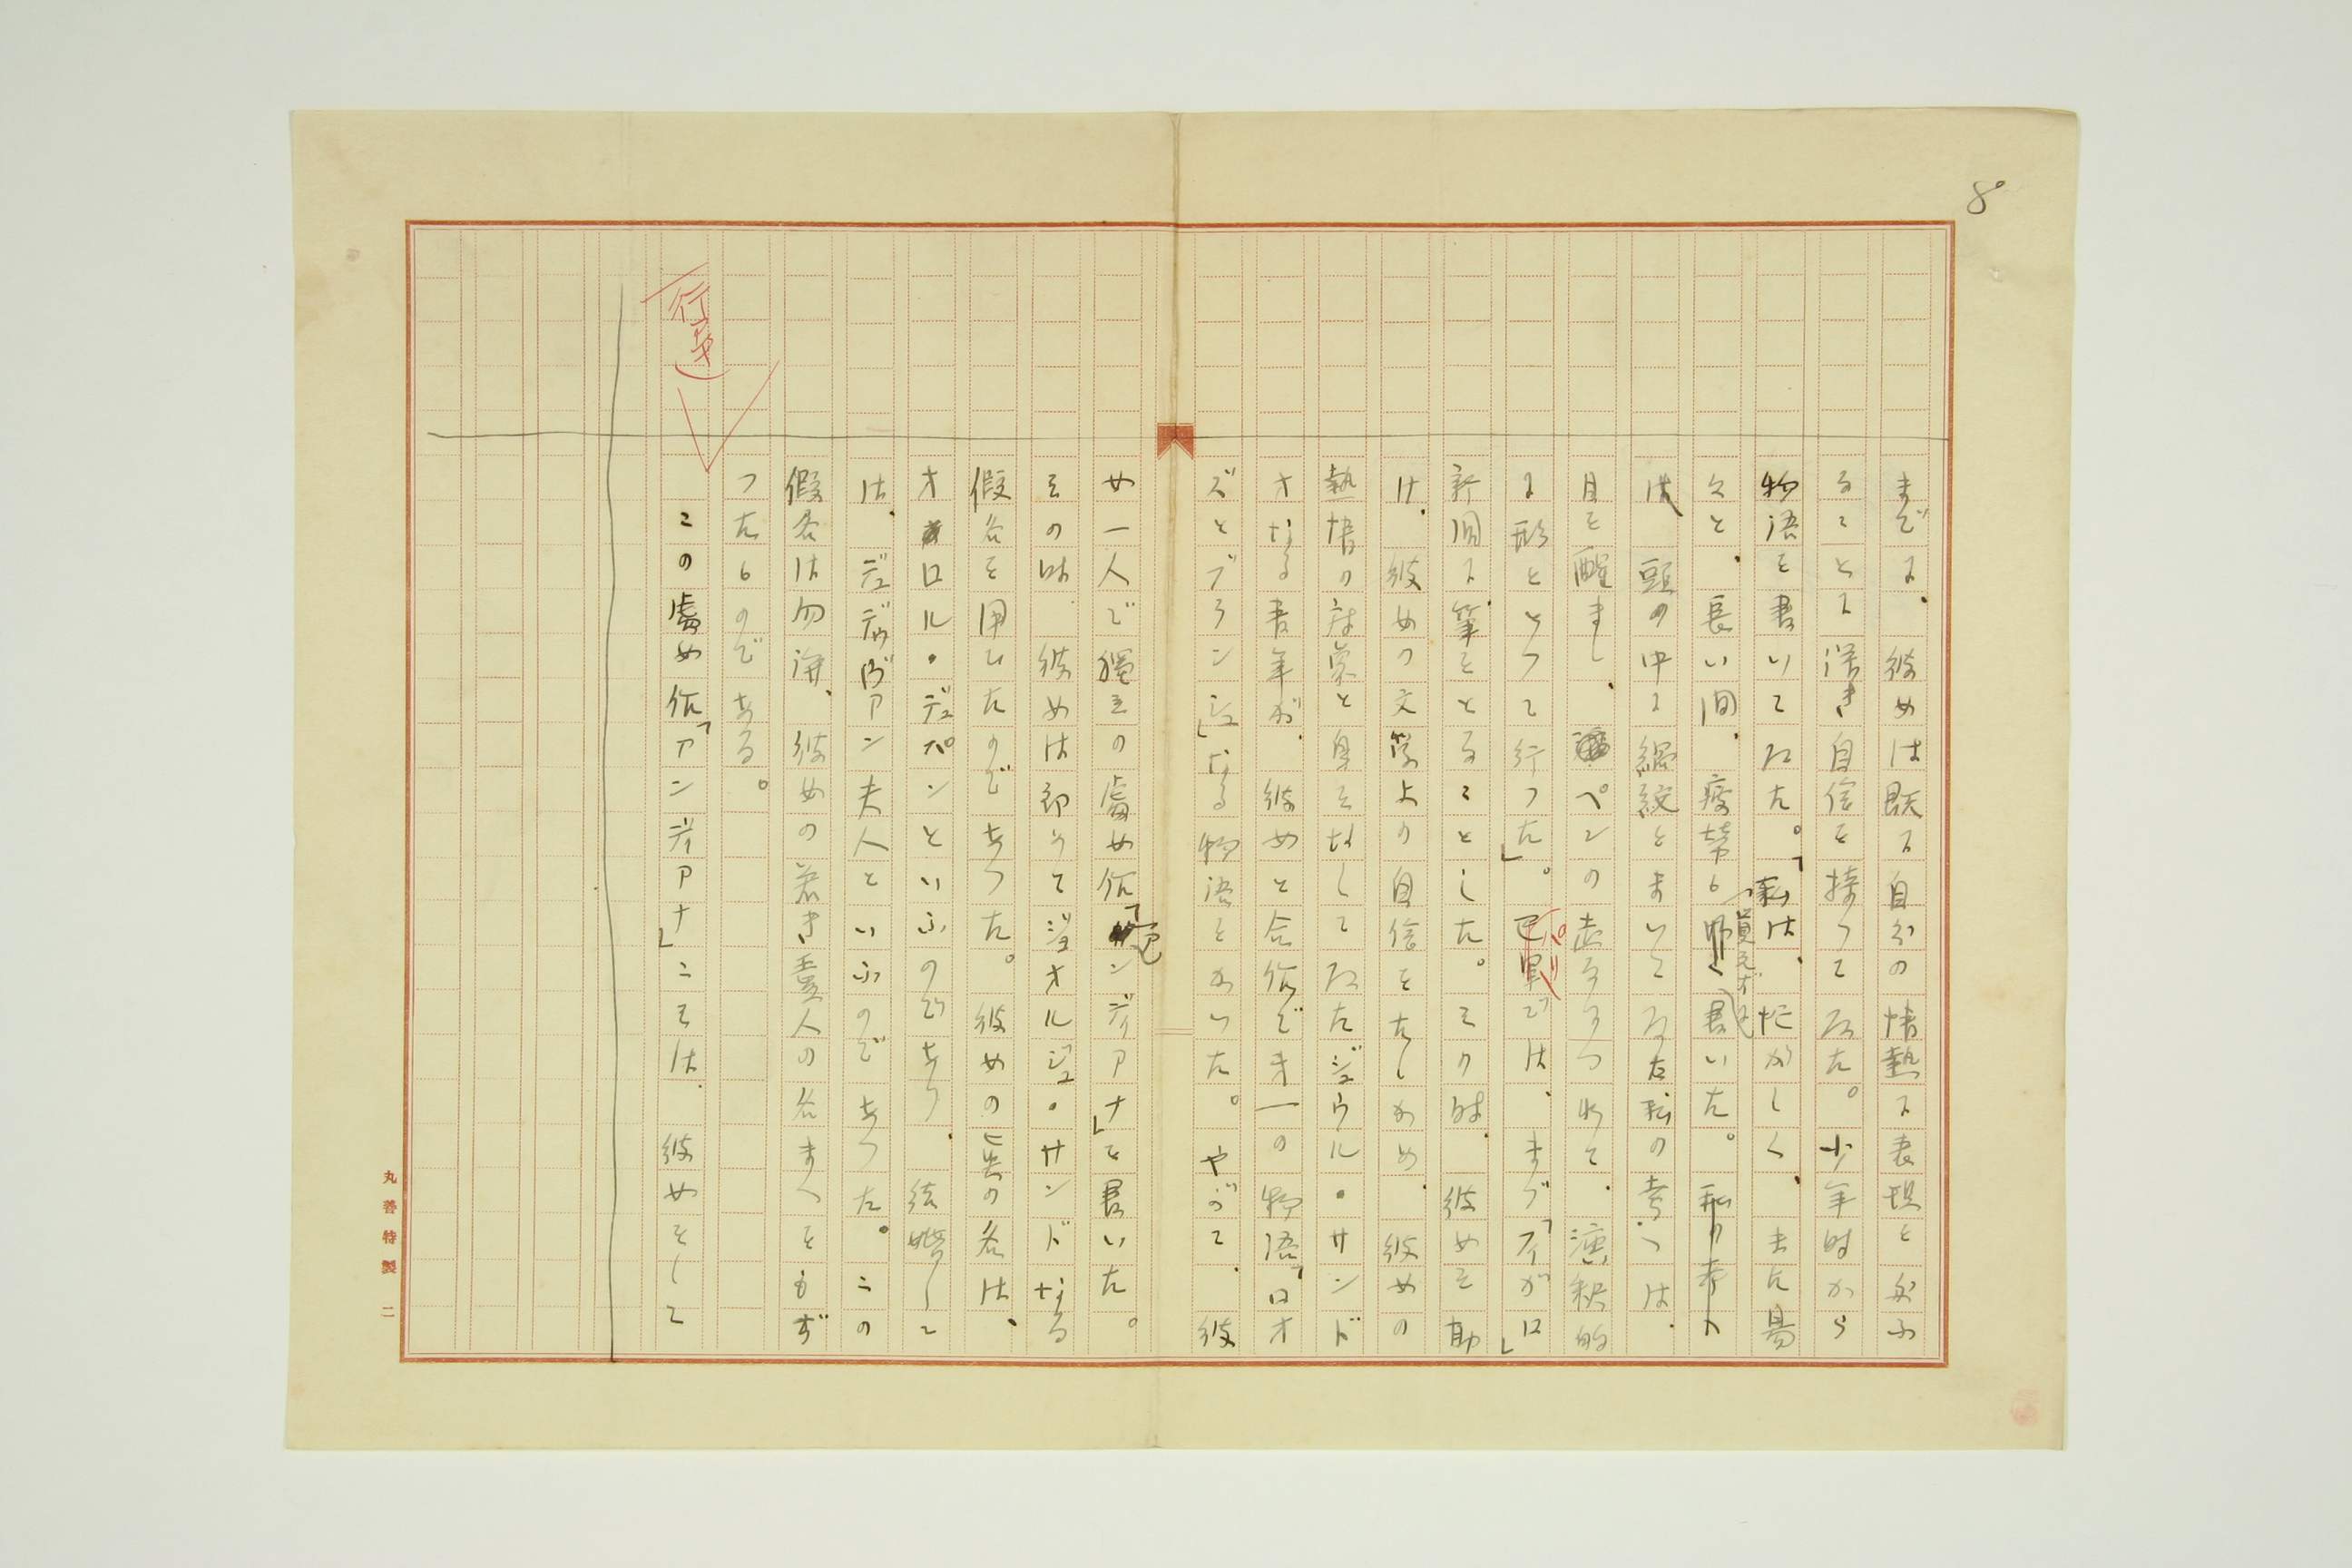 8
までに、彼女は既に自分の情熱に表現を與ふ
ることに深き自信を持つてゐた。少年時から
物語を書いてゐた。「私は、忙がしく、また易
々と、長い間、疲勞も覺えずに書いた。
は、頭の中に繃絞をまいてゐた私の考へは、
目を醒まし、ペンの走るにつれて、演繹的
に形をとつて行つた」。パリでは、まづ「フィガロ」
新聞に筆をとることとした。その時、彼女を助
け、彼女の文學上の自信をたしかめ、彼女の
熱情の対象と身をなしてゐたジュウル・サンド
オなる青年が、彼女と合作で才一の物語「ロオ
ズとブランシュ」なる物語をかいた。やがて、彼
女一人で獨立の處女作「アンディアナ」を書いた。
その時、彼女は郎りてジョオルジュ・サンドなる
假名を用ひたのであつた。彼女の真の名は、
オロル・デュパンといふのであり、結婚して
は、デュデヴァン夫人といふのであつた。この
假名は勿論、彼女の若き愛人の名まへをもぢ
つたものである。
行違
この處女作「アンディアナ」こそは、彼女をして
丸善特製 二